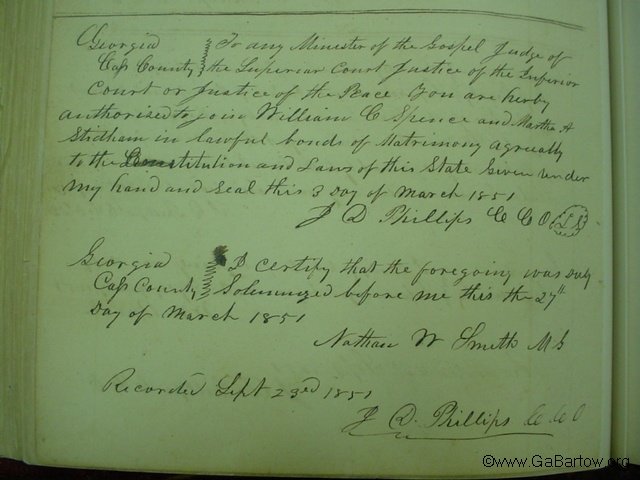 Georgia To any Minister of the Gospel Judge of
Cass County the Superior Court Justice of the Inferior
Court or Justice of the Peace You are herby
authorised to join William C Spence and Martha A
Stidham in lawful bonds of Matrimony agreeably
to the Constitution and Laws of this State Given under
my hand and Seal this 3 Day of March 1851
J D Phillips C C O LS
Georgia I certify that the foregoing was duly
Cass County Solemnized before me this the 27th
Day of March 1851
Nathan W Smith
Recorded Sept 23rd 1851
J D. Phillips C C O
©www.GaBartow.org